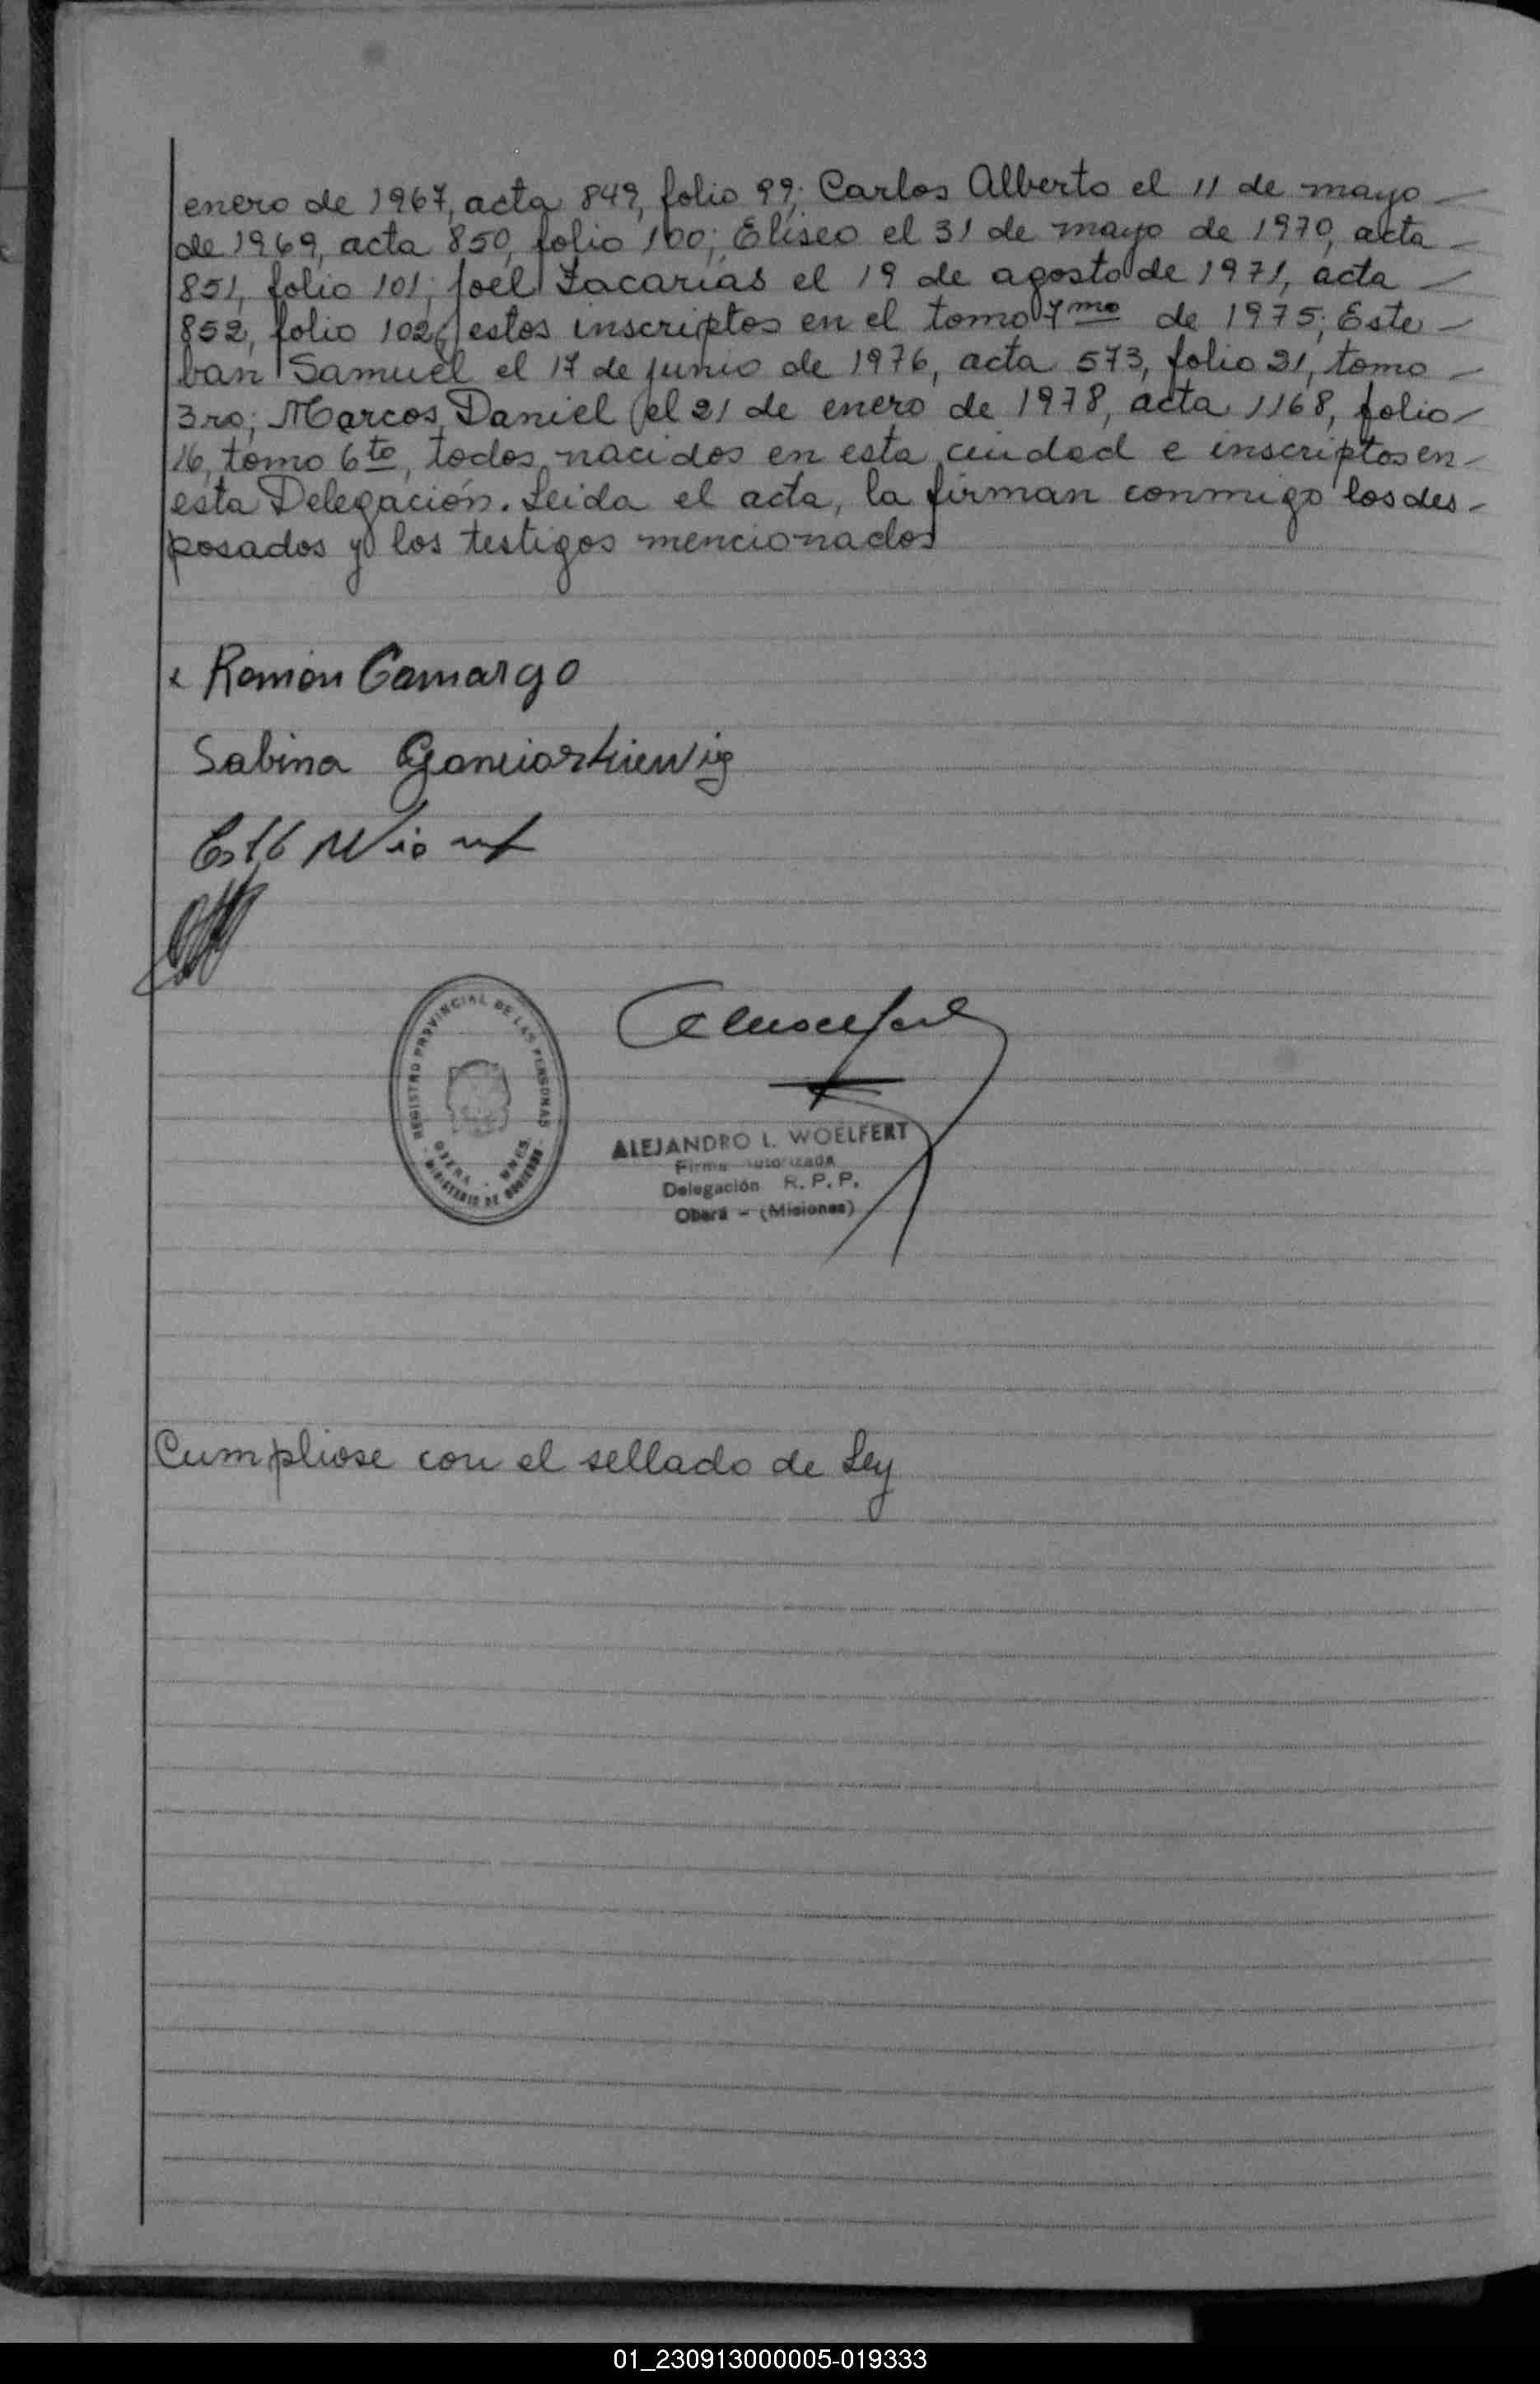 enero de 1967, acta 849, folio 99; Carlos Alberto el 11 de mayo —
de 1969, acta 850, folio 100; Eliseo el 31 de mayo de 1970, acta —
851, folio 101; Joel Zacarías el 19 de agosto de 1971, acta —
852, folio 102, estos inscriptos en el tomo 7mo de 1975; Este —
ban Samuel el 17 de junio de 1976, acta 573, folio 21, tomo —
3ro; Marcos Daniel el 21 de enero de 1978, acta 1168, folio —
16, tomo 6to, todos nacidos en esta ciudad e inscriptos en —
esta Delegación. Leida el acta, la firman conmigo los des -
posados y los testigos mencionados
x Ramón Camargo
Sabina
REGISTRO PROVINCIAL DE LAS PERSONAS
OBERA - MNES.
MINISTERIO DE GOBIERNO
ALEJANDRO L. WOELFERT
Firma autorizada
Delegación R. P. P.
Oberá - (Misiones)
Cumpliose con el sellado de Ley
01_230913000005-019333